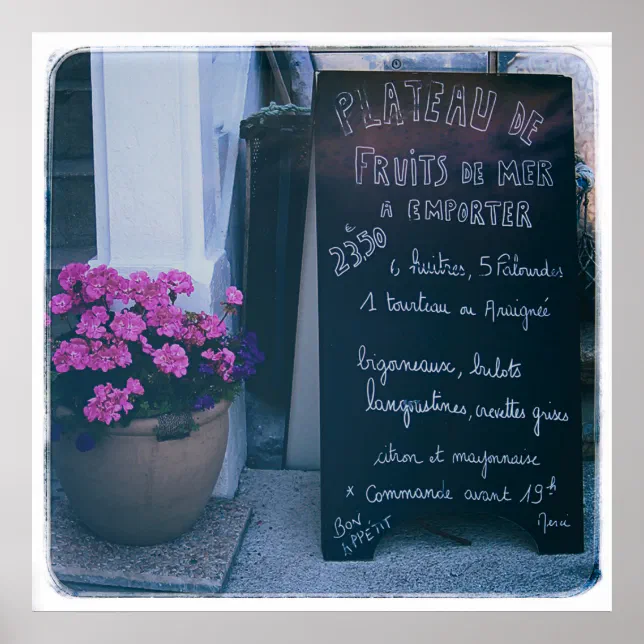 PLATEAU DE
FRUITS DE MER
A EMPORTER
€
23,50
6 huitres, 5 Palourdes
1 tourteau ou Araignée
bigorneaux, bulots
langoustines, crevettes grises
citron et mayonnaise
* Commande avant 19h
BON
APPÉTIT
Merci